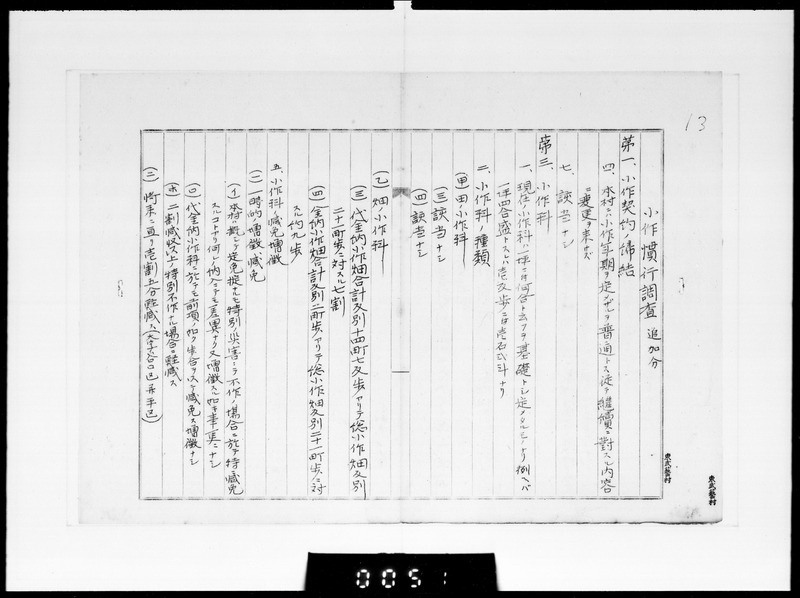 13
小作慣行調査 追加分
第一、小作契約ノ締結
四、本村ニハ小作年期ヲ定メザルヲ普通トス従テ継續ニ對スル内容
ニ変更ヲ来サズ
七、該当ナシ
第三、小作料
一、現在ノ小作料ハ一坪ニ付何合ト云フヲ基礎トシ定メタルモノナリ例ヘバ
一坪四合盛トスレバ壱反歩ニ付壱石弐斗ナリ
二、小作料ノ種類
(甲)田ノ小作料
(三)該当ナシ
(四)該当ナシ
(乙)畑ノ小作料
(三)代金納小作畑合計反別十四町七反歩アリテ総小作畑反別
二十一町歩ニ対スル七割
(四)金納小作畑合計反別二町歩アリテ総小作畑反別二十一町歩ニ対
スル約九歩
五、小作料ノ減免増徴
(一)一時的増徴減免
(イ)本村ニ於テ定免掟ナルモ特別ノ災害ニテ不作ノ場合ニ於テ特ニ減免
スルコトアリ何レノ納入ニテモ差異ナク又増徴スル如キ事実ニナシ
(ロ)代金納小作料ニ於テモ前項ノ如ク歩合ヲ以テ減免ス増徴ナシ
(ホ)二割減収以上ノ特別不作ナル場合ニ軽減ス
(二)将来ニ亘リ壱割五分軽減ス
東武藝村
東武藝村
0051